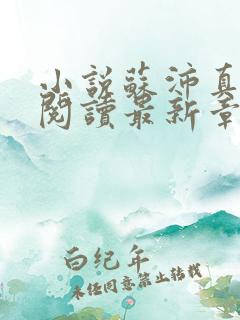 小說蘇沛真
閱讀最新章
白纪年
未经同意禁止转载